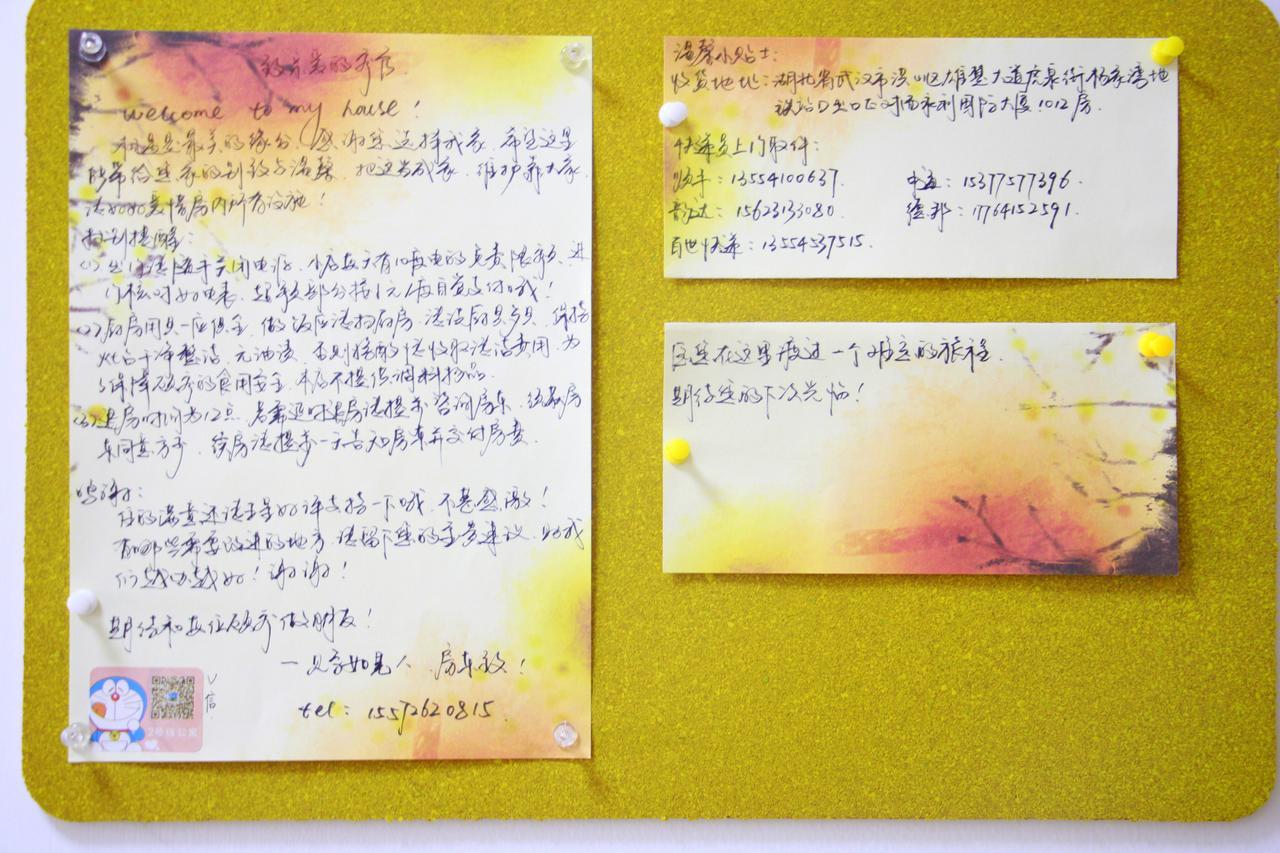 致亲爱的客官
welcome to my house!
相遇是最美的缘分,感谢您选择我家,希望这里
能带给您家的别致与温馨,把这当成家,维护靠大家
请好好爱惜房内所有设施!
特别提醒:
(1)出门请随手关闭电源,小店每天有10度电的免费限额,进
门核对好电表,超额部分按1元/每度自觉支付哦!
(2)厨房用具一应俱全,做饭后请打扫厨房,清洗厨具餐具,保持
灶台干净整洁,无油渍,否则按酌情收取清洁费用,为
了保障顾客的食用安全,本店不提供调料物品。
(3)退房时间为12点,若需延时退房请提前咨询房东,经房
东同意方可,续房请提前一天告知房东并交付房费。
鸣谢:
住的满意还请五星好评支持一下哦,不甚感激!
有哪些需要改进的地方,请留下您的宝贵建议,助我
们越办越好!谢谢!
期待和每位顾客做朋友!
一见字如见人 房东致!
V信
tel: 15572620815
温馨小贴士:
收货地址:湖北省武汉市洪山区雄楚大道虎泉街杨家湾地
铁站D出口正对面永利国际大厦1012房.
快递员上门取件:
顺丰:13554100637. 申通:15377577396.
韵达:15623133080. 德邦:17764152591.
百世快递:13554537515.
愿您在这里度过一个难忘的旅程
期待您的下次光临!